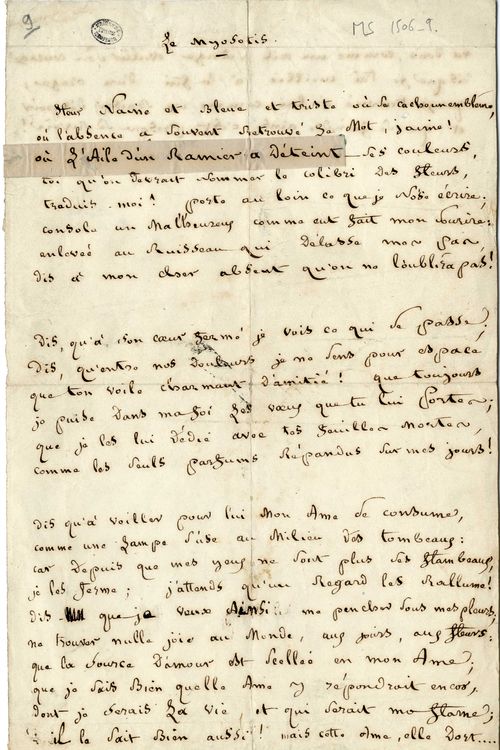 9
MS 1506-9.
Le Myosotis.
Fleur Naine et Bleue et triste où se cache un emblème,
où l'absence a Souvent Retrouvé Le Mot, j'aime!
où L'Aile d'un Ramier a Déteint Ses couleurs,
toi qu'on devrait nommer le colibri des fleurs,
traduis-moi! porte au loin ce que je N'ose écrire;
console un Malheureux comme eut fait mon Sourire:
enlevée au Ruisseau qui délasse mes pas,
dis à mon cher absent qu'on ne l'oublira pas!
Dis, qu'à Son cœur fermé je vois ce qui se passe;
Dis, qu'entre nos douleurs je ne Sens pour espace
que ton voile charmant d'amitié! que toujours
je puise dans ma foi Les vœux que tu lui portes;
que je les lui dédie avec tes feuilles Mortes,
comme les Seuls parfums Répandus Sur mes jours!
dis qu'à veiller pour lui Mon Ame se consume,
comme une Lampe s'use au Milieu des tombeaux:
car depuis que mes yeux ne Sont plus Ses flambeaux,
je les ferme; j'attends qu'un Regard les Rallume!
dis que je veux Ainsi me pencher Sous mes pleurs,
ne trouver nulle joie au Monde, aux jours, aux fleurs:
que La Source d'amour est Scellée en mon Ame;
que je Sais Bien quelle Ame y répondrait encor,
dont je Serais La vie, et qui Serait ma flame;
il le Sait Bien aussi! mais cette Ame, elle Dort...